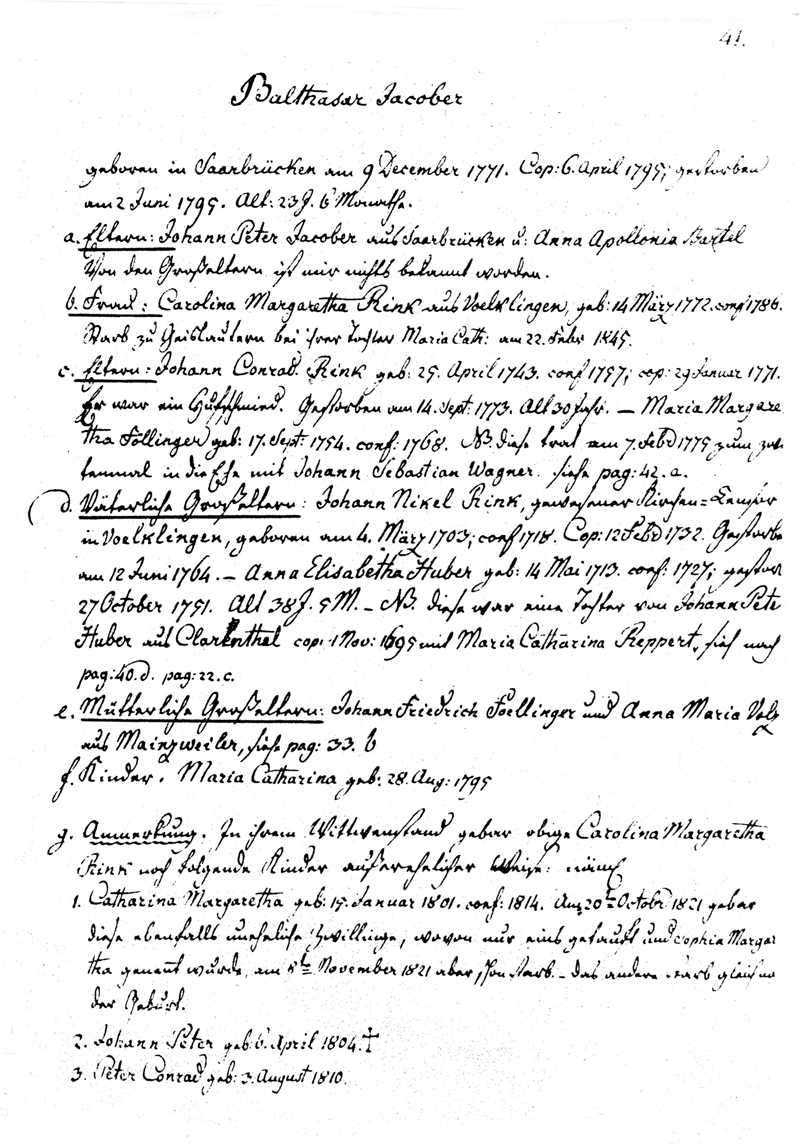 41.
Balthasar Jacober
geboren in Saarbrücken am 9 December 1771. Cop: 6. April 1795; gestorben
am 2 Juni 1795. Alt: 23 J. 6 Monathe.
a. Eltern: Johann Peter Jacober aus Saarbrücken u: Anna Apollonia Bartel
Von den Großeltern ist mir nichts bekannt worden.
b. Frau: Carolina Margaretha Rink aus Voelklingen, geb: 14 März 1772. conf 1786.
Starb zu Geislautern bei ihrer Tochter Maria Cath: am 22. Febr 1845.
c. Eltern: Johann Conrad Rink geb: 25. April 1743. conf 1757; cop: 29 Januar 1771.
Er war ein Hufschmied. Gestorben am 14. Sept: 1773. Alt 30 Jahr. — Maria Margare
tha Föllinger geb: 17. Sept: 1754. conf: 1768. NB. diese trat am 7. Febr 1775 zum zwe
tenmal in die Ehe mit Johann Sebastian Wagner. siehe pag: 42. a.
d. Väterliche Großeltern: Johann Nikel Rink, gewesener Kirchen=Censor
in Voelklingen, geboren am 4. März 1703; conf 1718. Cop: 12 Febr 1732. Gestorbe
am 12 Juni 1764. — Anna Elisabetha Huber geb: 14 Mai 1713. conf: 1727; gestor
27 October 1751. Alt 38 J. 5 M. — NB. diese war eine Tochter von Johann Pete
Huber aus Clarenthal cop: 1 Nov: 1695 mit Maria Catharina Reppert, sieh nach
pag: 40. d. pag: 22. c.
e. Mütterliche Großeltern: Johann Friedrich Foellinger und Anna Maria Volz
aus Mainzweiler, siehe pag: 33. b
f. Kinder. Maria Catharina geb: 28. Aug: 1795
g. Anmerkung. In ihrem Wittwenstand gebar obige Carolina Margaretha
Rink noch folgende Kinder außerehelicher Weise: näml
1. Catharina Margaretha geb: 15. Januar 1801. conf: 1814. Am 20t Octobr 1821 gebar
diese ebenfalls uneheliche Zwillinge, wovon nur eins getauft und Sophia Margar
tha genent wurde, am 8t November 1821 aber schon starb. — das andere starb gleich na
der Geburt.
2. Johann Peter geb: 6. April 1804. †
3. Peter Conrad geb: 3. August 1810.